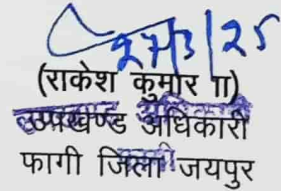 27/3/25
(राकेश कुमार II)
उपखण्ड अधिकारी
फागी जिला जयपुर